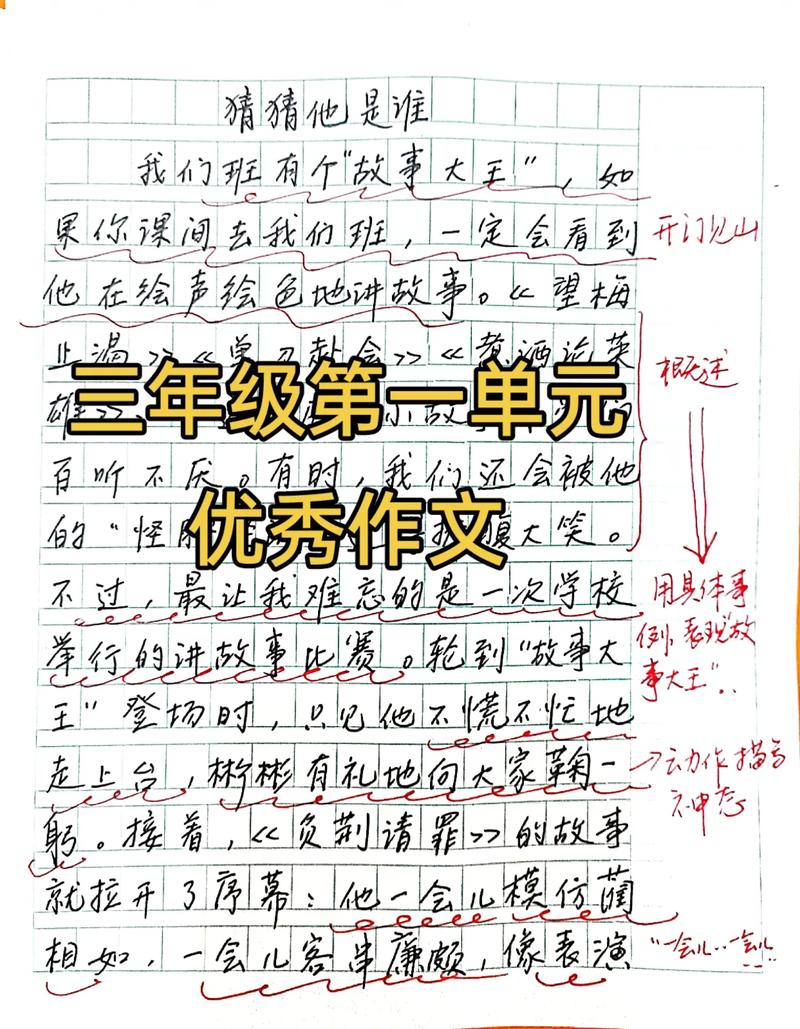 猜猜他是谁
我们班有个“故事大王”，如
果你课间去我们班，一定会看到
开门见山
他在绘声绘色地讲故事。《望梅
止渴》《单刀赴会》《煮酒论英
概述
雄》
三年级第一单元
百听不厌。有时，我们还会被他
的“怪
腹大笑。
优秀作文
不过，最让我难忘的是一次学校
用具体事
例，表现“故
事大王”..
举行的讲故事比赛。轮到“故事大
王”登场时，只见他不慌不忙地
走上台，彬彬有礼地向大家鞠一
→动作描写
神态
躬。接着，《负荆请罪》的故事
就拉开了序幕：他一会儿模仿蔺
相如，一会儿客串廉颇，像表演
“一会儿..一会儿